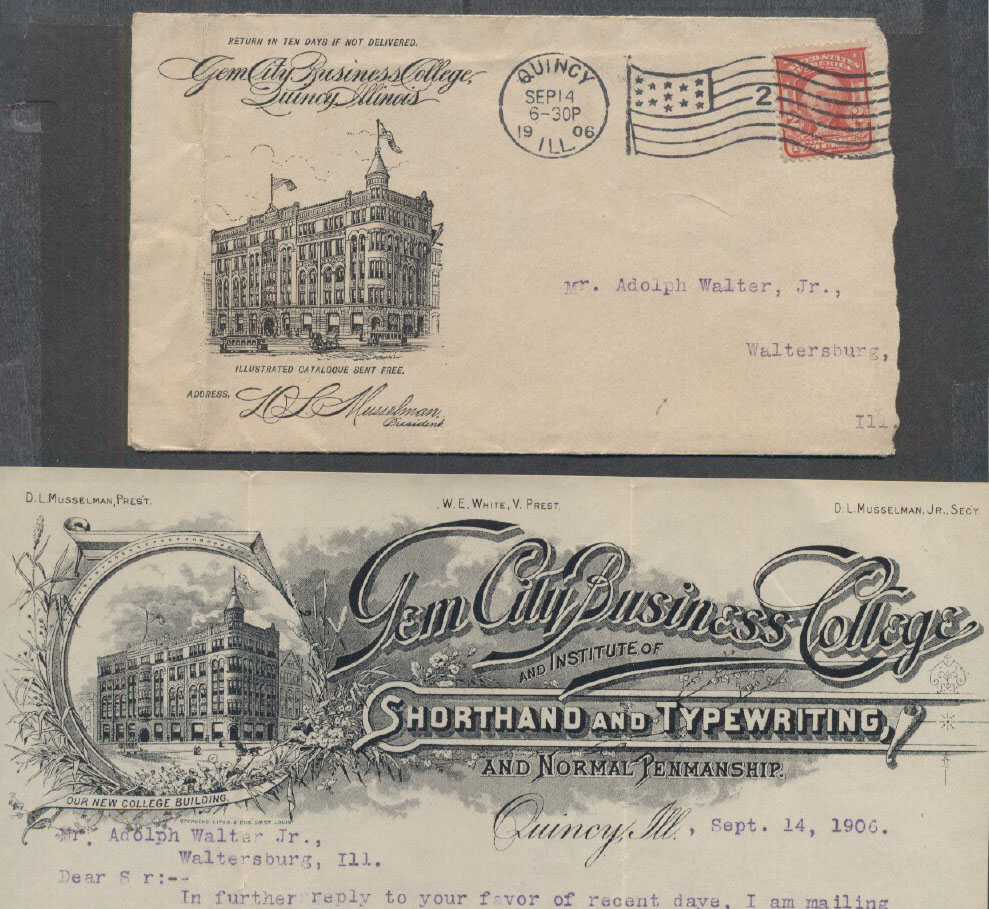 RETURN IN TEN DAYS IF NOT DELIVERED.
Gem City Business College,
Quincy Illinois
QUINCY
SEP 14
6-30P
19 06
ILL.
2
Mr. Adolph Walter, Jr.,
Waltersburg,
Ill.
ILLUSTRATED CATALOGUE SENT FREE.
ADDRESS, D L Musselman,
President
D.L. MUSSELMAN, PRES'T.
W. E. WHITE, V. PREST.
D. L. MUSSELMAN, JR., SECY.
Gem City Business College
AND INSTITUTE OF
SHORTHAND AND TYPEWRITING,
AND NORMAL PENMANSHIP.
OUR NEW COLLEGE BUILDING.
Quincy, Ill., Sept. 14, 1906.
Mr. Adolph Walter Jr.,
Waltersburg, Ill.
Dear S r:--
In further reply to your favor of recent days, I am mailing